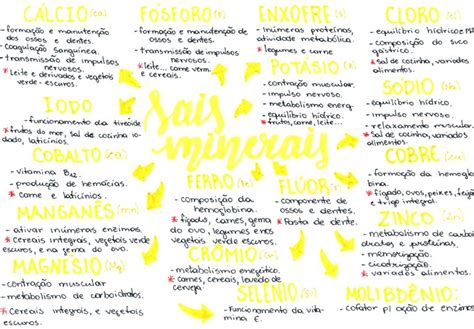 CÁLCIO (Ca)
- formação e manutenção
dos ossos e dentes.
- coagulação sanguínea.
- transmissão de impulsos
nervosos.
* leite e derivados e vegetais
verde-escuros.
FÓSFORO (P)
- formação e manutenção
de ossos e dentes.
- transmissão de impulsos
nervosos.
* leite... carne verm
e cereais.
ENXOFRE (S)
- inúmeras proteínas,
atividade metabólica
* legumes e carne
CLORO (Cl)
- equilíbrio hídrico e pH
- composição do suco
gástrico.
* sal de cozinha, variados
alimentos.
POTÁSIO (K)
- contração muscular.
- impulso nervoso.
- metabolismo energ.
- equilíbrio hídrico.
* frutas, carne, leite...
SÓDIO (Na)
- equilíbrio hídrico.
- impulso nervoso
- relaxamento muscular.
* Sal de cozinha, variados
alimentos.
IODO
- funcionamento da tireóide
* frutos do mar, sal de cozinha iodado,
laticínios.
Sais
minerais
COBALTO (Co)
- vitamina B12.
- produção de hemácias.
* carne e laticínios.
FERRO (Fe)
- composição da
hemoglobina.
* fígado, carnes, gema
do ovo, legumes e nos
vegetais verde escuros.
FLÚOR (F)
- componente de
ossos e dentes.
* Pasta de dente.
COBRE (Cu)
- formação da hemoglobina.
* fígado, ovos, peixes, feijão
e trigo integral.
MANGANÊS (Mn)
- ativar inúmeras enzimas.
* cereais integrais, vegetais verde
escuros, e na gema do ovo.
ZINCO (Zn)
- metabolismo de carboidratos
e proteínas.
- memorização.
- cicatrização.
* variados alimentos.
MAGNÉSIO (Mg)
- contração muscular
- metabolismo de carboidratos.
* Cereais integrais, e vegetais
escuros.
CRÔMIO (Cr)
- metabolismo energético.
* carnes, cereais, levedo de
SELÊNIO (Se)
- Funcionamento da vitamina
E.
MOLIBDÊNIO:
- cofator p/ ação de enzimas